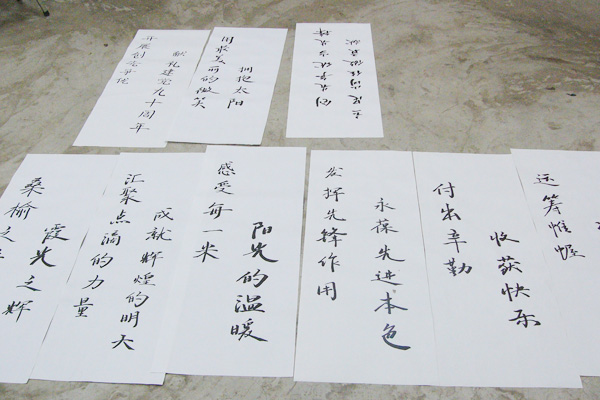 开展创先争优
献礼建党九十周年
用最美丽的微笑
拥抱太阳
桑榆之
霞光之辉
汇聚点滴的力量
成就辉煌的明天
感受每一米
阳光的温暖
发挥先锋作用
永葆先进本色
付出辛勤
收获快乐
运筹帷幄